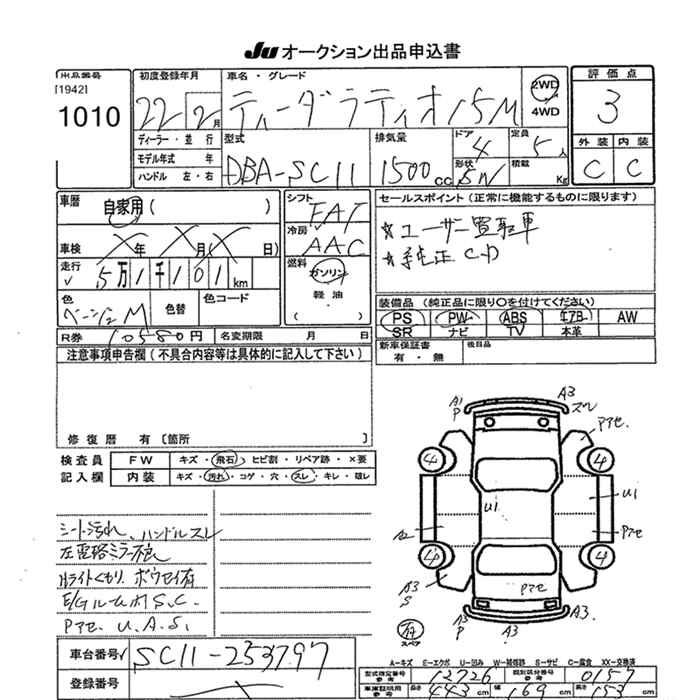 JU オークション出品申込書
出品番号
[1942]
1010
初度登録年月
22年2月
ディーラー・並行
モデル年式 年
ハンドル 左・右
車名・グレード
ティーダラティオ 15M
2WD
4WD
評価点
3
外装 内装
C C
型式
DBA-SC11
排気量
1500cc
ドア
4
定員
5人
形状
SN
積載
Kg
車歴
自家用( )
車検
X年 X月(X日)
走行
5万1千101km
色
ベージュM
色替
色コード
シフト
FAT
冷房
AAC
燃料
ガソリン
軽油・
( )
セールスポイント(正常に機能するものに限ります)
☆ユーザー買取車
☆純正CD
装備品(純正品に限り〇を付けてください)
PS PW ABS エアB AW
SR ナビ TV 本革
R券 10580円
名変期限 月 日
新車保証書
有・無
後日品
注意事項申告欄(不具合内容等は具体的に記入して下さい)
修復歴 有〔箇所 〕
検査員
記入欄
FW キズ・飛石・ヒビ割・リペア跡・×要
内装 キズ・汚れ・コゲ・穴・スレ・キレ・破レ
シート汚れ、ハンドルスレ
左電格ミラー
Hライトくもり、ボウセイ有
E/Gルーム内S.C.
Pアセ U.A.S.
A1
P
A3
スレ
Pアセ
4
4
U1
U1
Pアセ
4
4
A3
S
Pアセ
A3
P
A3
A3
スペア
A-キズ E-エクボ U-凹み W-補修跡 S-サビ C-腐食 XX-交換済
車台番号
SC11-253797
登録番号
型式指定番号
参考
12726
類別区分番号
参考
0157
車庫証明用
参考
長さ
443cm
幅
169cm
高さ
153cm